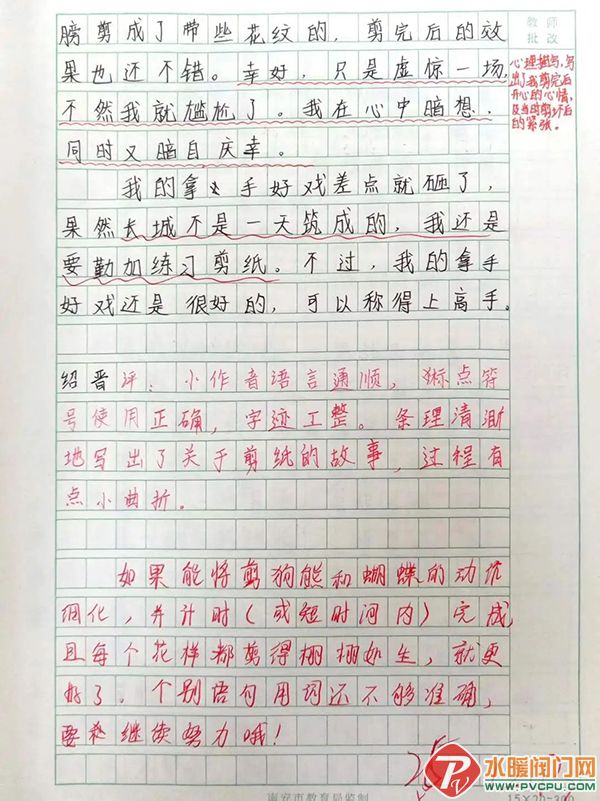 教师
批改
膀剪成了带些花纹的，剪完后的效
果也还不错。幸好，只是虚惊一场，
不然我就尴尬了。我在心中暗想，
同时又暗自庆幸。
心理描写，写
出了我剪完后
开心的心情，
及当时剪坏后
的紧张。
我的拿手好戏差点就砸了，
果然长城不是一天筑成的，我还是
要勤加练习剪纸。不过，我的拿手
好戏还是很好的，可以称得上高手。
绍晋评：小作者语言通顺，标点符
号使用正确，字迹工整。条理清晰
地写出了关于剪纸的故事，过程有
点小曲折。
如果能将剪狗熊和蝴蝶的动作
细化，并计时（或短时间内）完成
且每个花样都剪得栩栩如生，就更
好了。个别语句用词还不够准确，
要继续努力哦！
南安市教育局监制
15×20=300
水暖阀门网
WWW.PVCPU.COM